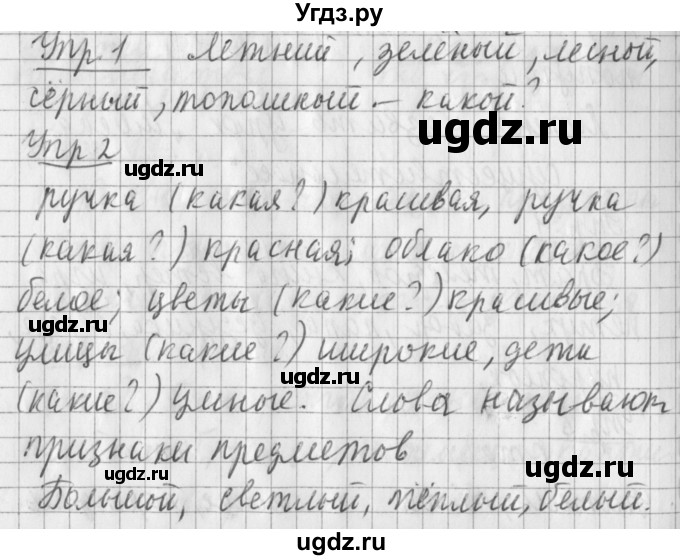 Угдз.ру
Упр. 1 Летний, зелёный, лесной,
чёрный, — какой?
ugdz.ru
Упр 2
ugdz.ru
ручка (какая?) красивая, ручка
(какая?) красная; облако (какое?)
белое; цветы (какие?) красивые;
ugdz.ru
улицы (какие?) широкие, дети
ugdz.ru
(какие?) умные. Слова называют
признаки предметов
ugdz.ru
ugdz.ru
Большой, светлый, тёплый, белый.
ugdz.ru
ugdz.ru